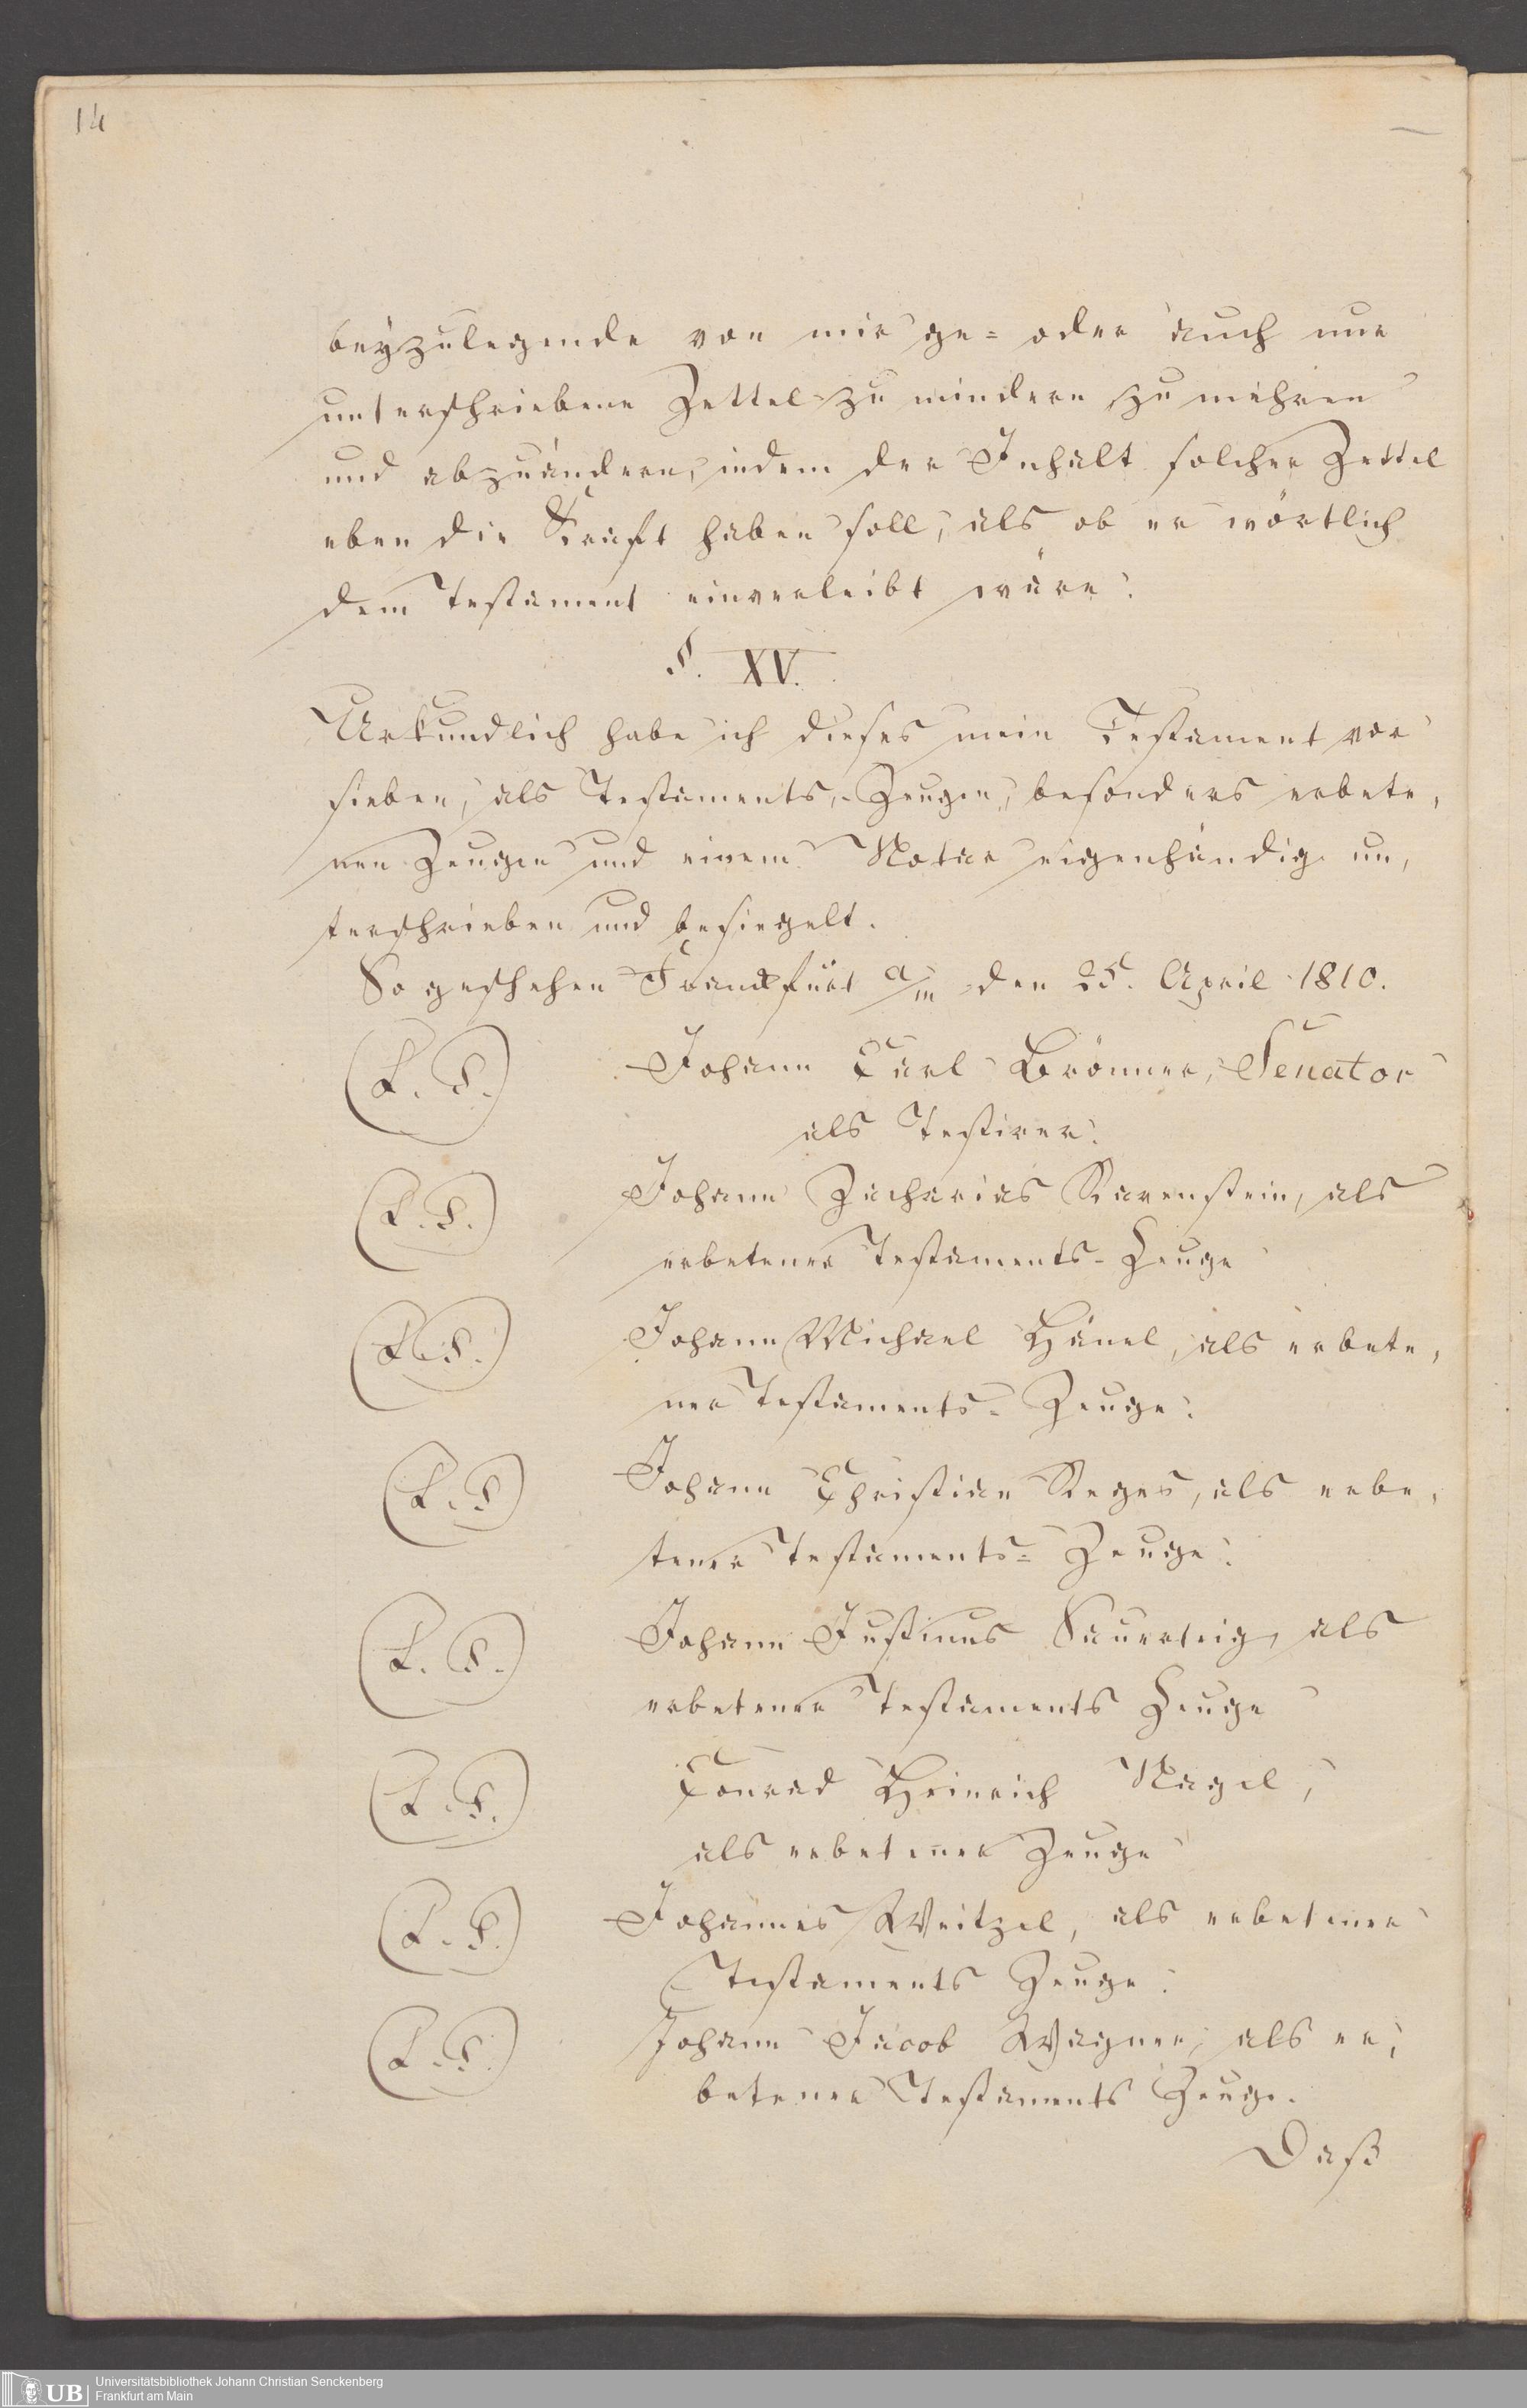 14
beyzulegende von mir ge= oder auch nur
unterschriebene Zettel zu mindern zu mehren
und abzuändern, indem der Inhalt solcher Zettel
eben die Kraft haben soll, als ob er wörtlich
dem Testament einverleibt wäre.
§. XV.
Urkundlich habe ich dieses mein Testament vor
sieben, als Testaments-Zeugen, besonders erbete,
nen Zeugen und einem Notar eigenhändig un,
terschrieben und besiegelt.
So geschehen Franckfurt a/m den 25. April 1810.
(L. S.) Johann Carl Brönner, Senator
als Testirer.
(L. S.) Johann Zacharias Karenstein, als
erbetener Testaments-Zeuge
(L. S.) Johann Michael Hänel, als erbete,
ner Testaments-Zeuge.
(L. S) Johann Christian Reges, als erbe,
tener Testaments=Zeuge.
(L. S.) Johann Justinus Sauerteig, als
erbetener Testaments Zeuge
(L. S.) Conrad Heinrich Nagel,
als erbetener Zeuge
(L. S.) Johannes Weitzel, als erbetener
Testaments Zeuge.
(L. S.) Johann Jacob Wagner, als er,
betener Testaments Zeuge.
Daß
UB
Universitätsbibliothek Johann Christian Senckenberg
Frankfurt am Main